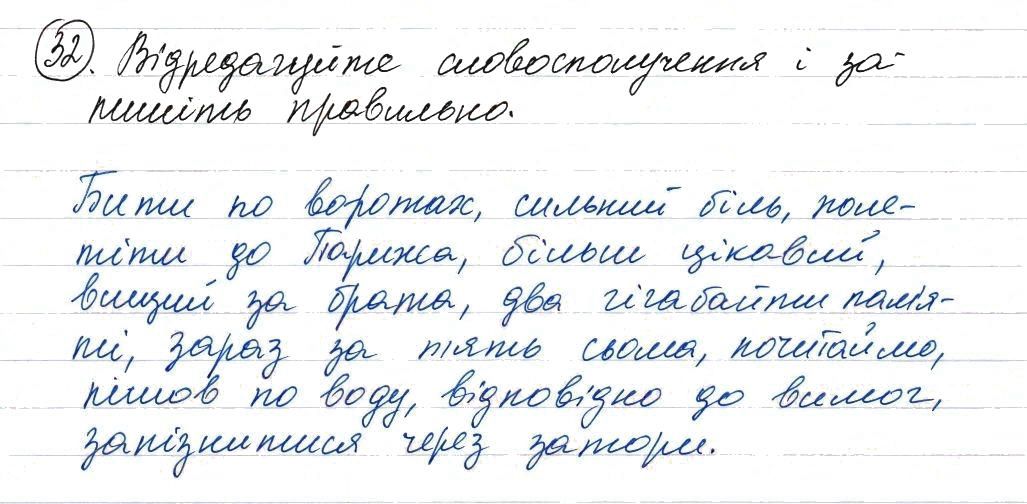 32. Відредагуйте словосполучення і за-
пишіть правильно.
Бити по воротах, сильний біль, поле-
тіти до Парижа, більш цікавий,
вищий за брата, два гігабайти пам'я-
ті, зараз за п'ять сьома, почитаймо,
пішов по воду, відповідно до вимог,
запізнитися через затори.